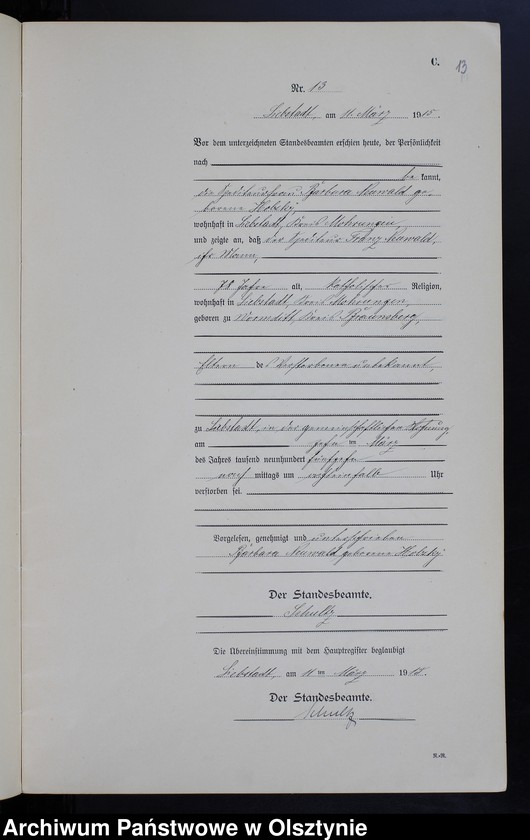 C.
13
Nr. 13
Liebstadt, am 11. März 1915.
Vor dem unterzeichneten Standesbeamten erschien heute, der Persönlichkeit
nach
be kannt,
die Barbara Nawald ge-
borene Holzky
wohnhaft in Liebstadt, Kreis Mohrungen,
und zeigte an, daß der Franz Nawald,
ihr Mann,
78 Jahre alt, katholischer Religion,
wohnhaft in Liebstadt, Kreis Mohrungen,
geboren zu Wormditt, Kreis Braunsberg,
Eltern des Verstorbenen unbekannt,
zu Liebstadt, in der gemeinschaftlichen Wohnung
am zehnten März
des Jahres tausend neunhundert fünfzehn
nach mittags um Uhr
verstorben sei.
Vorgelesen, genehmigt und unterschrieben
Barbara Nawald geborene Holzky
Der Standesbeamte.
Schultz
Die Übereinstimmung mit dem Hauptregister beglaubigt
Liebstadt, am 11 ten März 1915.
Der Standesbeamte.
Schultz
Archiwum Państwowe w Olsztynie